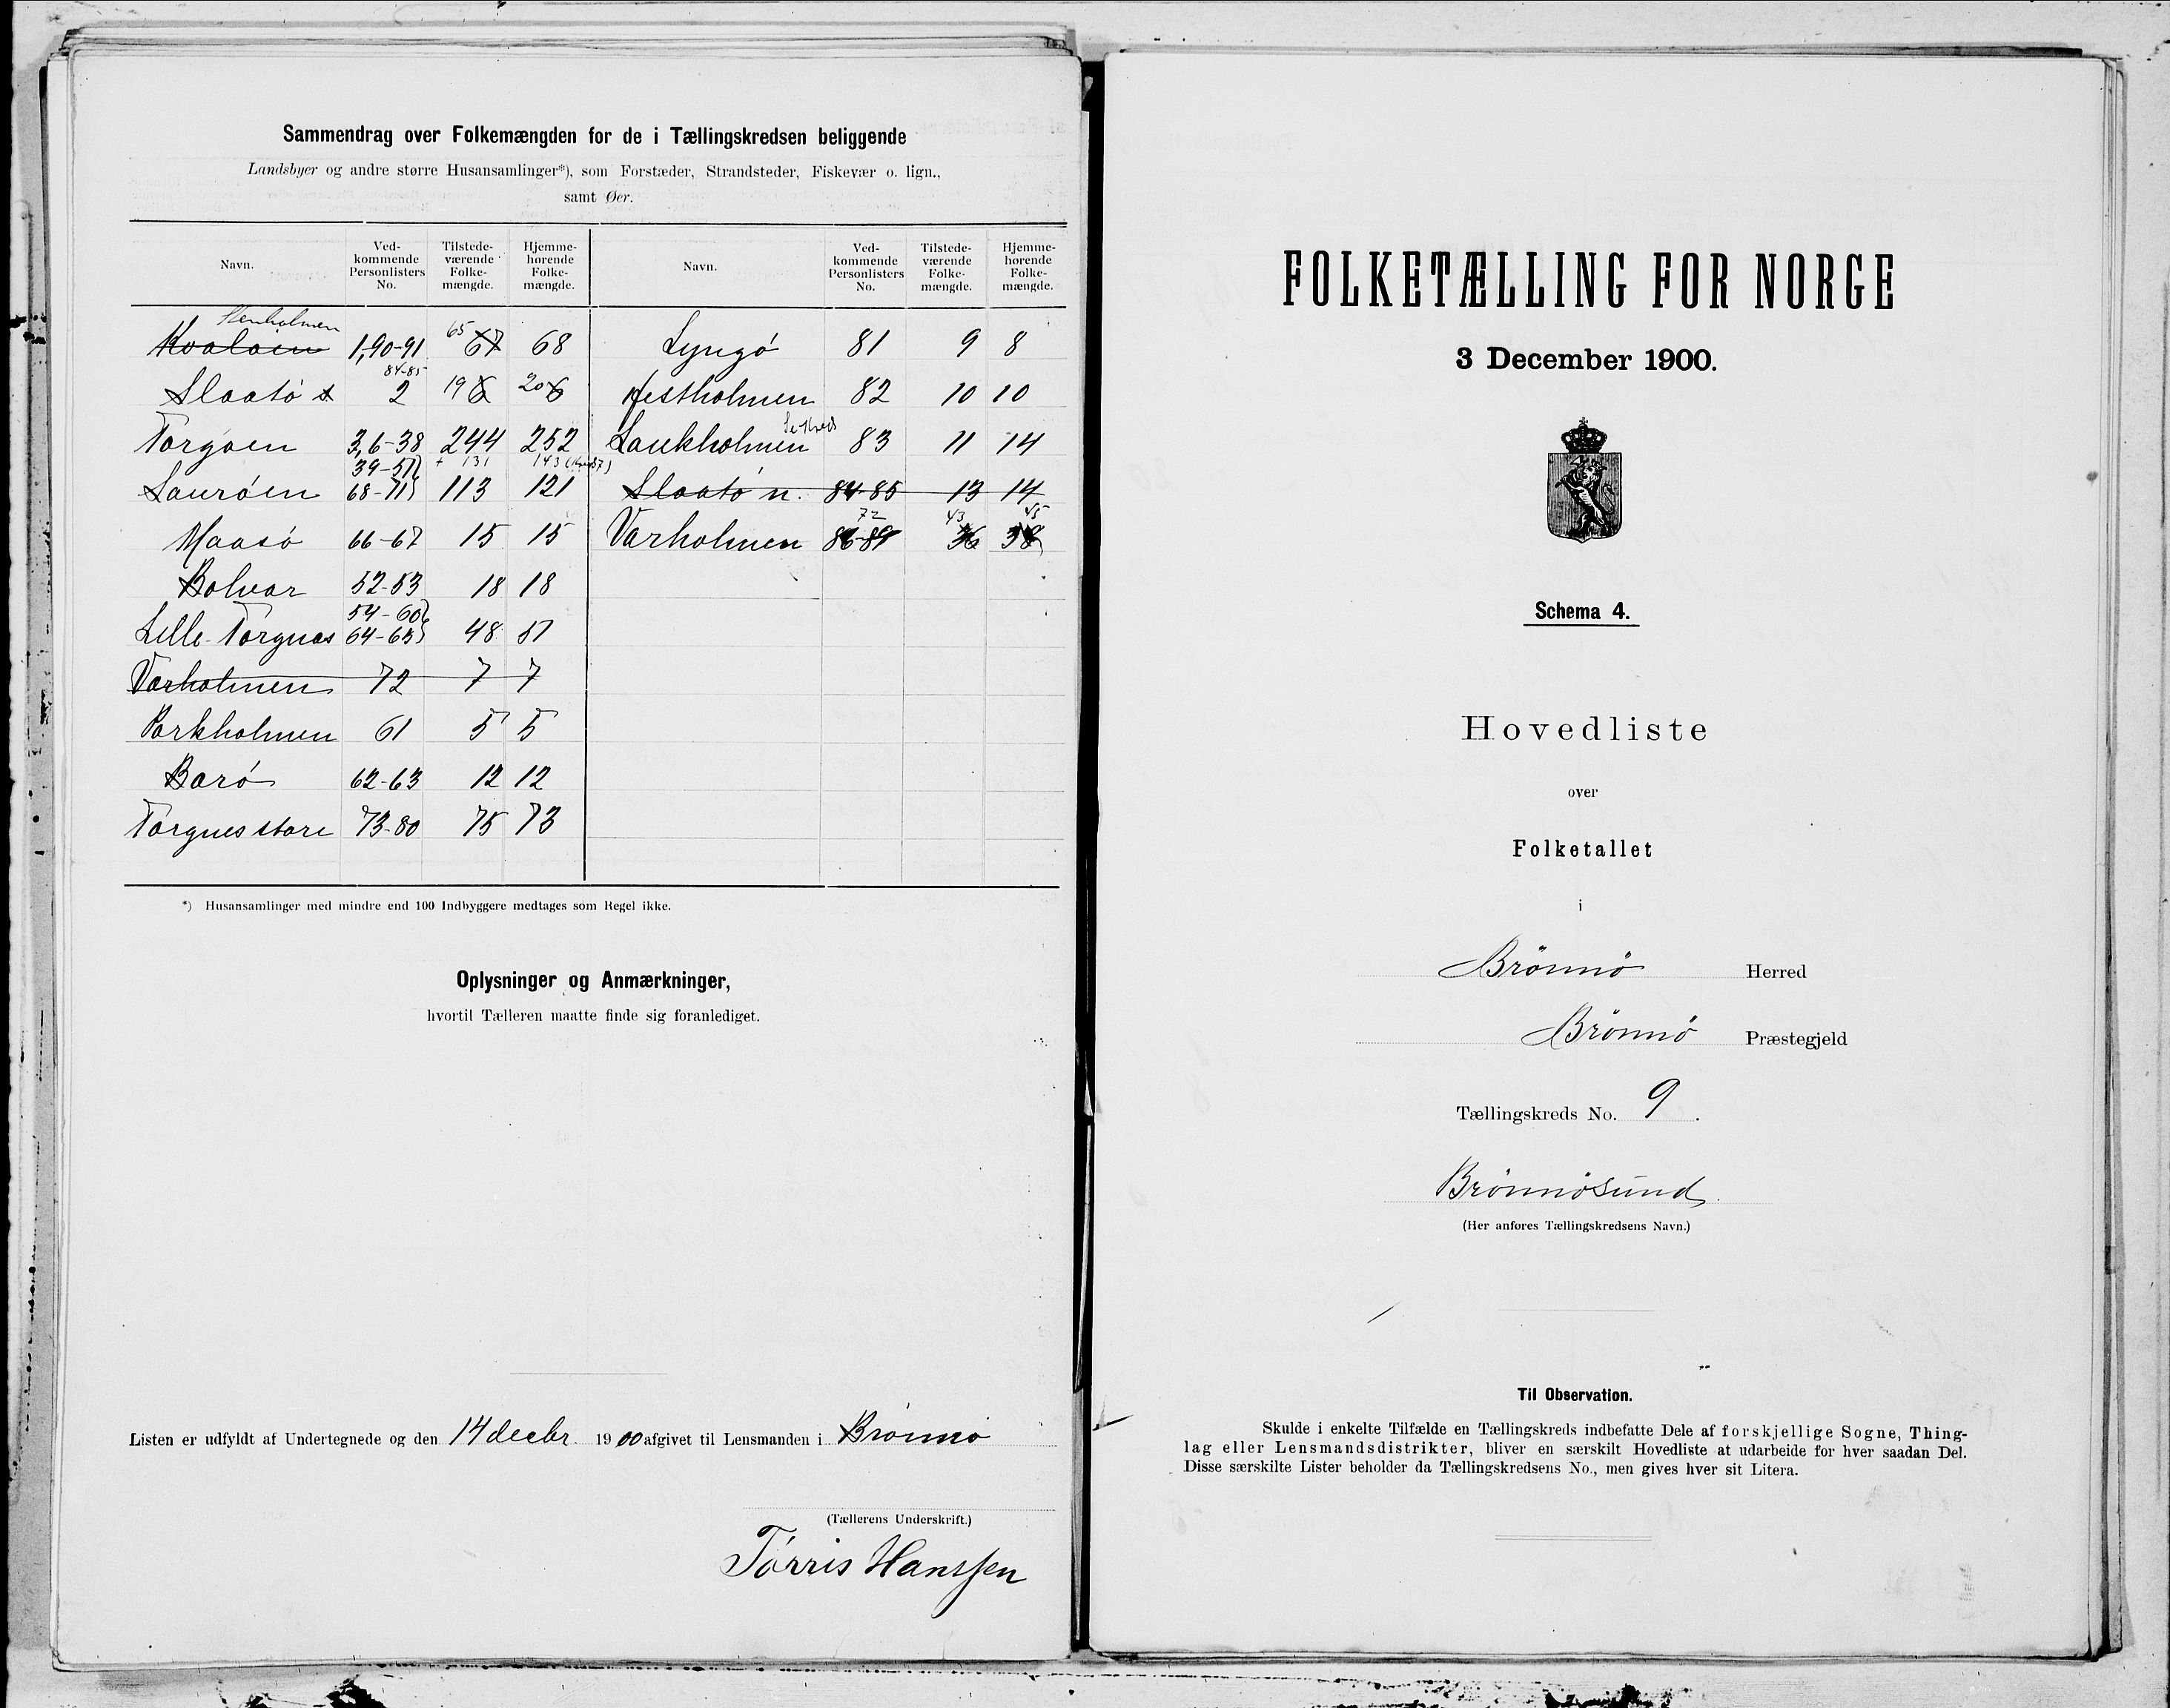 Sammendrag over Folkemængden for de i Tællingskredsen beliggende
Landsbyer og andre større Husansamlinger*), som Forstæder, Strandsteder, Fiskevær o. lign.,
samt Øer.
Navn. Ved-kommende Personlisters No. Tilstede-værende Folke-mængde. Hjemme-hørende Folke-mængde. Navn. Ved-kommende Personlisters No. Tilstede-værende Folke-mængde. Hjemme-hørende Folke-mængde.
Stenholmen 65
Kvaløen 1,90-91 67 68 Lyngø 81 9 8
84-85
Slaatø s 2 19 6 20 6 Hestholmen 82 10 10
Torgøen 3,6-38 244 252 Laukholmen 83 11 14
39-51 + 131 143
Saurøen 68-71 113 121 Slaatø n. 84-85 13 14
72 43 45
Maasø 66-67 15 15 Værholmen 86-89 36 38
Bolvær 52-53 18 18
54-60
Lille-Torgnæs 64-65 48 51
Værholmen 72 7 7
Porkholmen 61 5 5
Barø 62-63 12 12
Torgnes store 73-80 75 73
*) Husansamlinger med mindre end 100 Indbyggere medtages som Regel ikke.
Oplysninger og Anmærkninger,
hvortil Tælleren maatte finde sig foranlediget.
Listen er udfyldt af Undertegnede og den 14 decbr. 1900 afgivet til Lensmanden i Brønnø
(Tællerens Underskrift.)
Tørris Hanssen
FOLKETÆLLING FOR NORGE
3 December 1900.
Schema 4.
Hovedliste
over
Folketallet
i
Brönnö Herred
Brönnö Præstegjeld
Tællingskreds No. 9.
Brönnösund
(Her anføres Tællingskredsens Navn.)
Til Observation.
Skulde i enkelte Tilfælde en Tællingskreds indbefatte Dele af forskjellige Sogne, Thing-
lag eller Lensmandsdistrikter, bliver en særskilt Hovedliste at udarbeide for hver saadan Del.
Disse særskilte Lister beholder da Tællingskredsens No., men gives hver sit Litera.